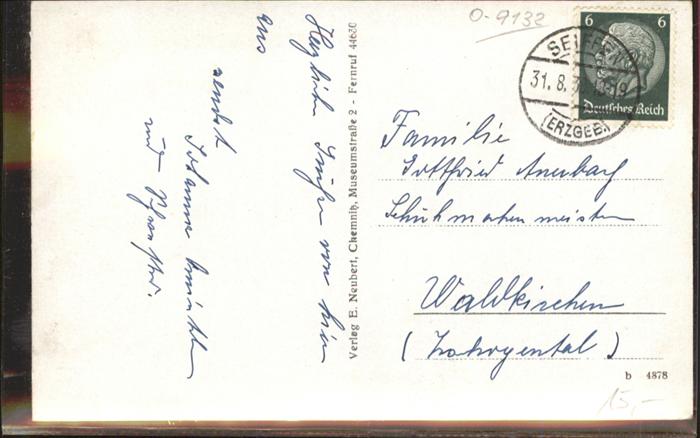 O-9132
6 6
Deutsches Reich
SEIFFEN
31. 8. 3
(ERZGEB.)
Herzliche Grüße von hier
aus
sendet
Johanne
und Schwester.
Verlag E. Neubert, Chemnitz, Museumstraße 2 - Fernruf 44630
Familie
Gottfried Auerbach
Schuhmachermeister
Waldkirchen
(Zschopental)
b 4878
15,-